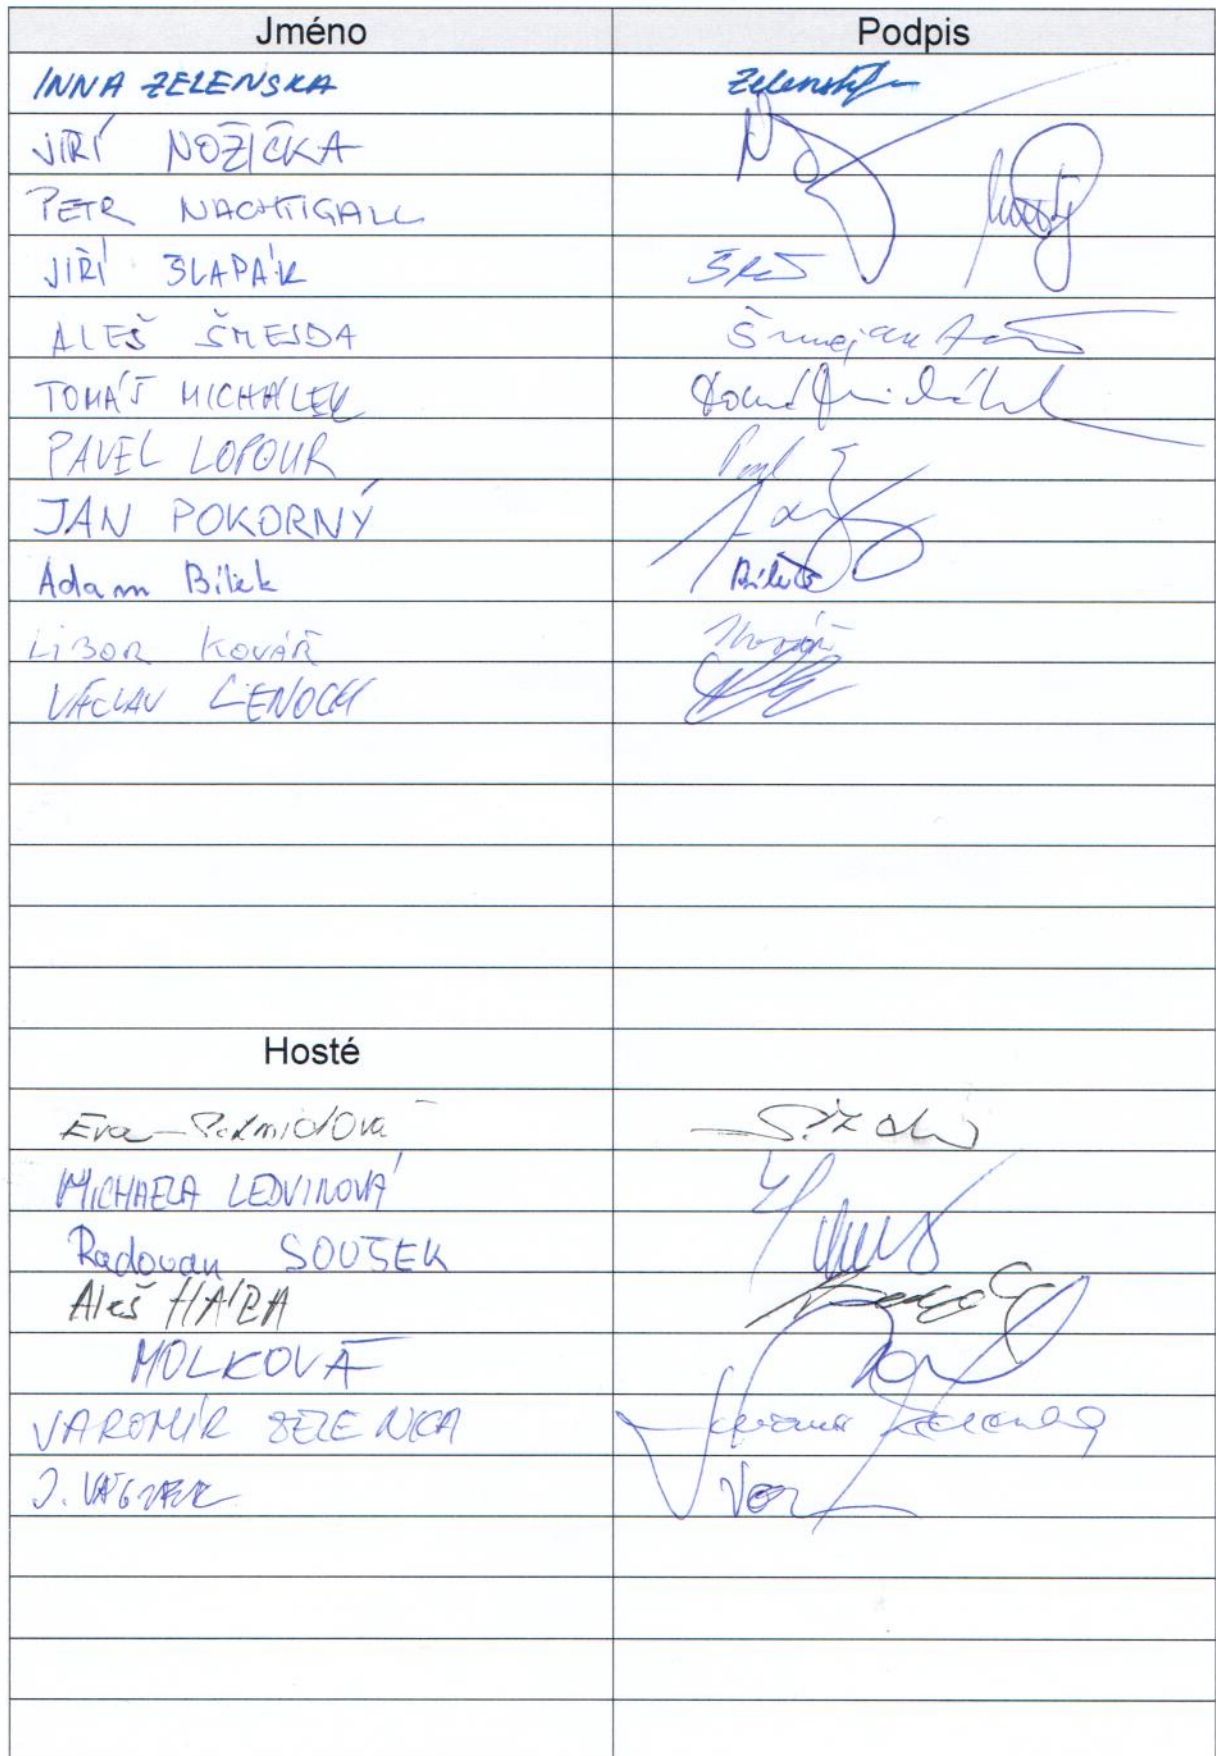 Jméno Podpis
INNA ZELENSKA Zelensk
JIŘÍ NOŽIČKA
PETR NACHTIGALL
JIŘÍ ŠLAPÁK
ALEŠ ŠMEJDA
TOMÁŠ MICHÁLEK Tomáš Michálek
PAVEL LOPOUR
JAN POKORNÝ
Adam Bílek Bílek
LIBOR KOVÁŘ Kovář
VÁCLAV LENOCH
Hosté
Eva Schmidová
MICHAELA LEDVINOVÁ
Radovan SOUŠEK
Aleš HÁBA
MOLKOVÁ
JAROMÍR ZELENKA Jaromír Zelenka
J. VÁGNER